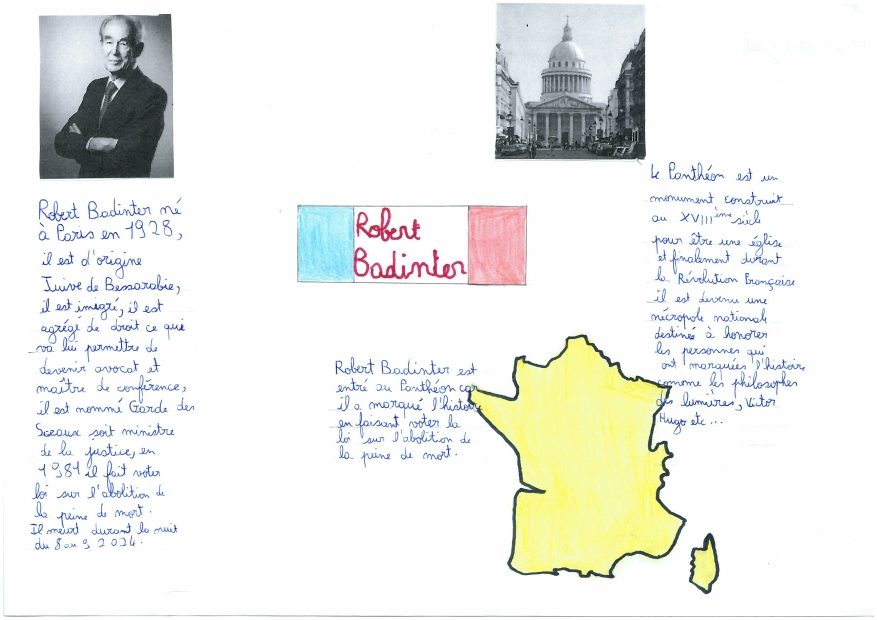 Robert Badinter né
à Paris en 1928,
il est d'origine
Juive de Bessarabie,
il est imegré, il est
agrégé de droit ce qui
va lui permettre de
devenir avocat et
maître de conférence,
il est nommé Garde des
Sceaux soit ministre
de la justice, en
1981 il fait voter
loi sur l'abolition de
la peine de mort.
Il meurt durant la nuit
du 8 au 9 2024.
Robert
Badinter
Robert Badinter est
entré au Panthéon car
il a marqué l'histoire
en faisant voter la
loi sur l'abolition de
la peine de mort.
Le Panthéon est un
monument construit
au XVIIIième siècle
pour être une église
et finalement durant
la Révolution Française
il est devenu une
nécropole nationale
destinée à honorer
les personnes qui
ont marquées l'histoire
comme les philosophes
des lumières, Victor
Hugo etc...